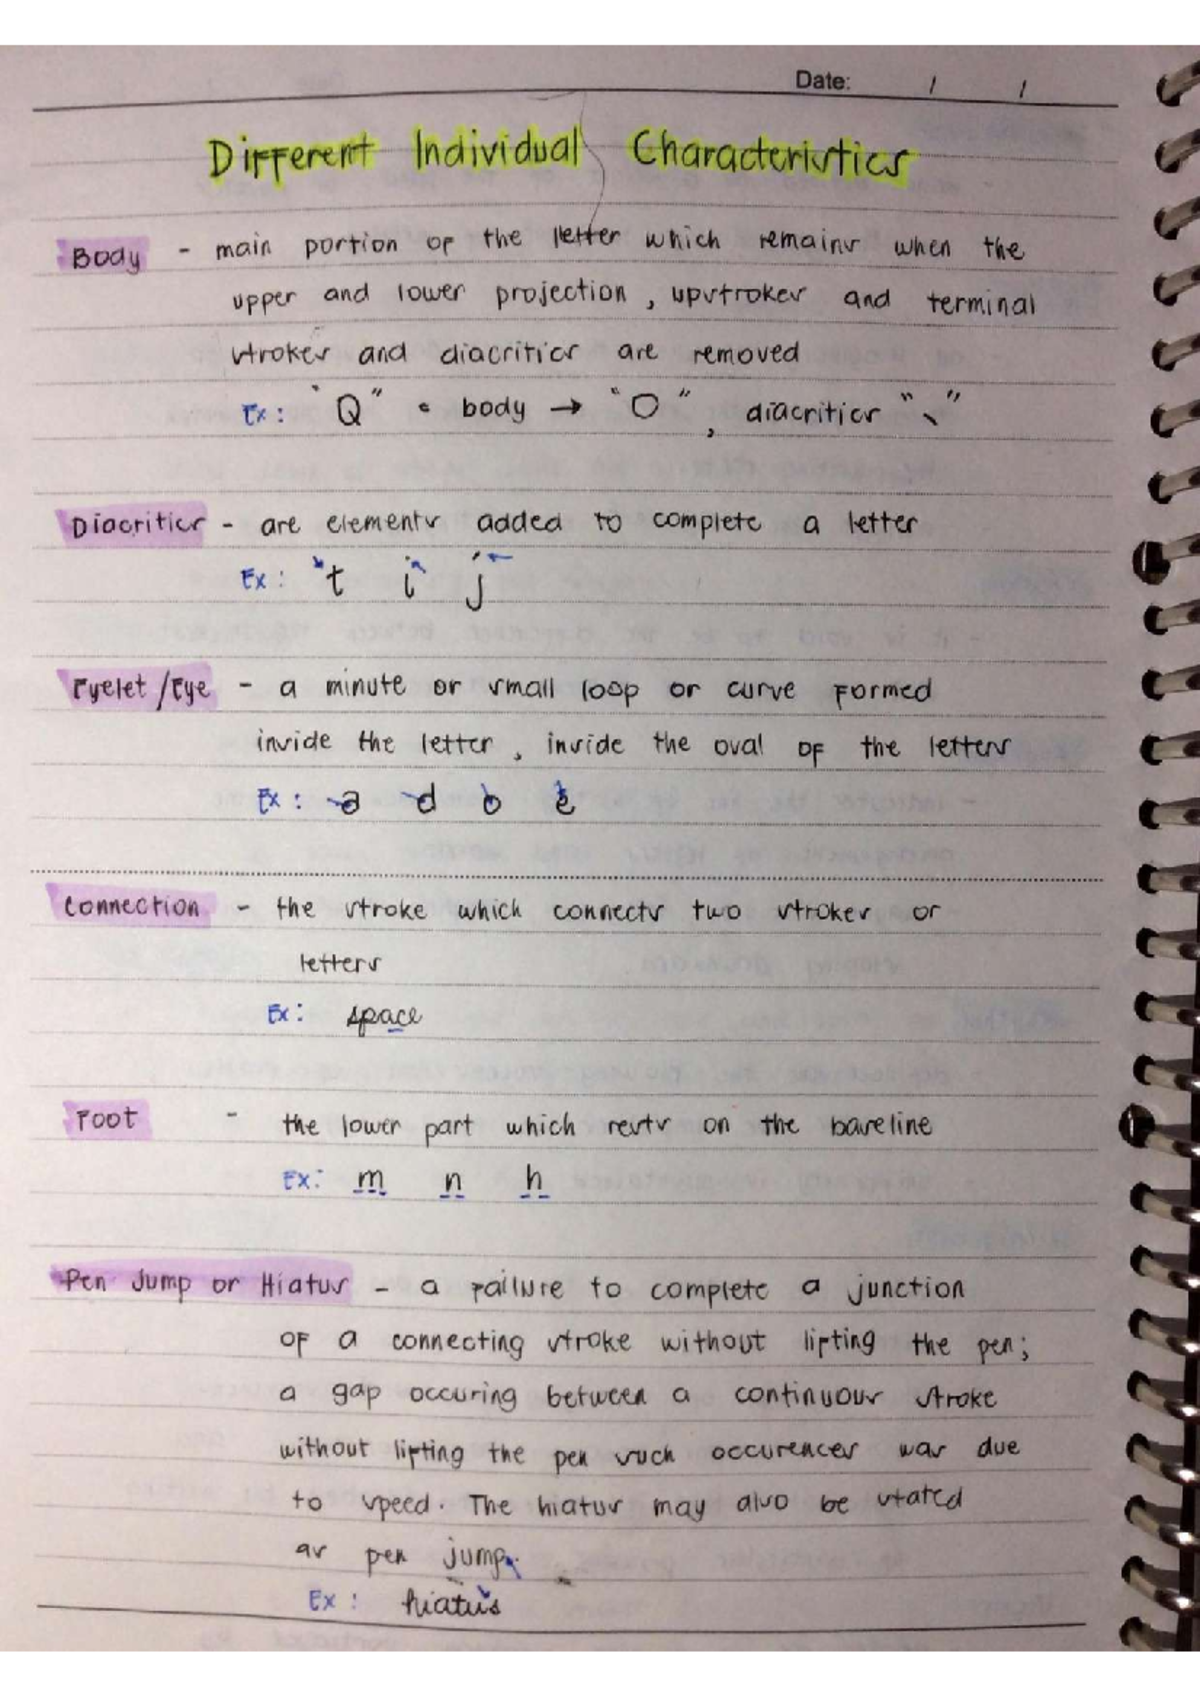 Date: / /
Different Individual Characteristics
Body - main portion of the letter which remains when the
upper and lower projection, upstrokes and terminal
strokes and diacritics are removed
Ex: "Q" • body → "O", diacritics "\"
Diacritics - are elements added to complete a letter
Ex: t i j
Eyelet/Eye - a minute or small loop or curve formed
inside the letter, inside the oval of the letters
Ex: a d o e
Connection - the stroke which connects two strokes or
letters
Ex: space
Foot - the lower part which rests on the baseline
Ex: m n h
Pen Jump or Hiatus - a failure to complete a junction
of a connecting stroke without lifting the pen;
a gap occuring between a continuous stroke
without lifting the pen such occurences was due
to speed. The hiatus may also be stated
as pen jump.
Ex: hiatus